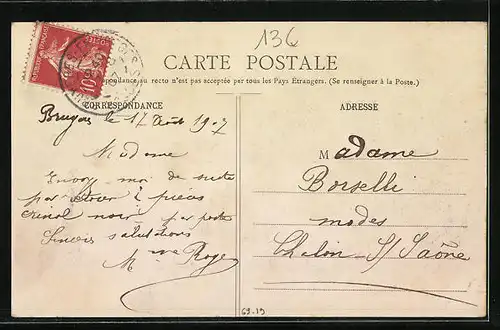 136
CARTE POSTALE
pondance au recto n'est pas acceptée par tous les Pays Étrangers. (Se renseigner à la Poste.)
CORRESPONDANCE
le 17 Août 1907
Madame
Envoyez moi de suite
par retour 2 pièces
crinol noir par poste
Sincères salutations
Mme Roge
ADRESSE
Madame
Borselli
modes
Chalon S/ Saône
69-19